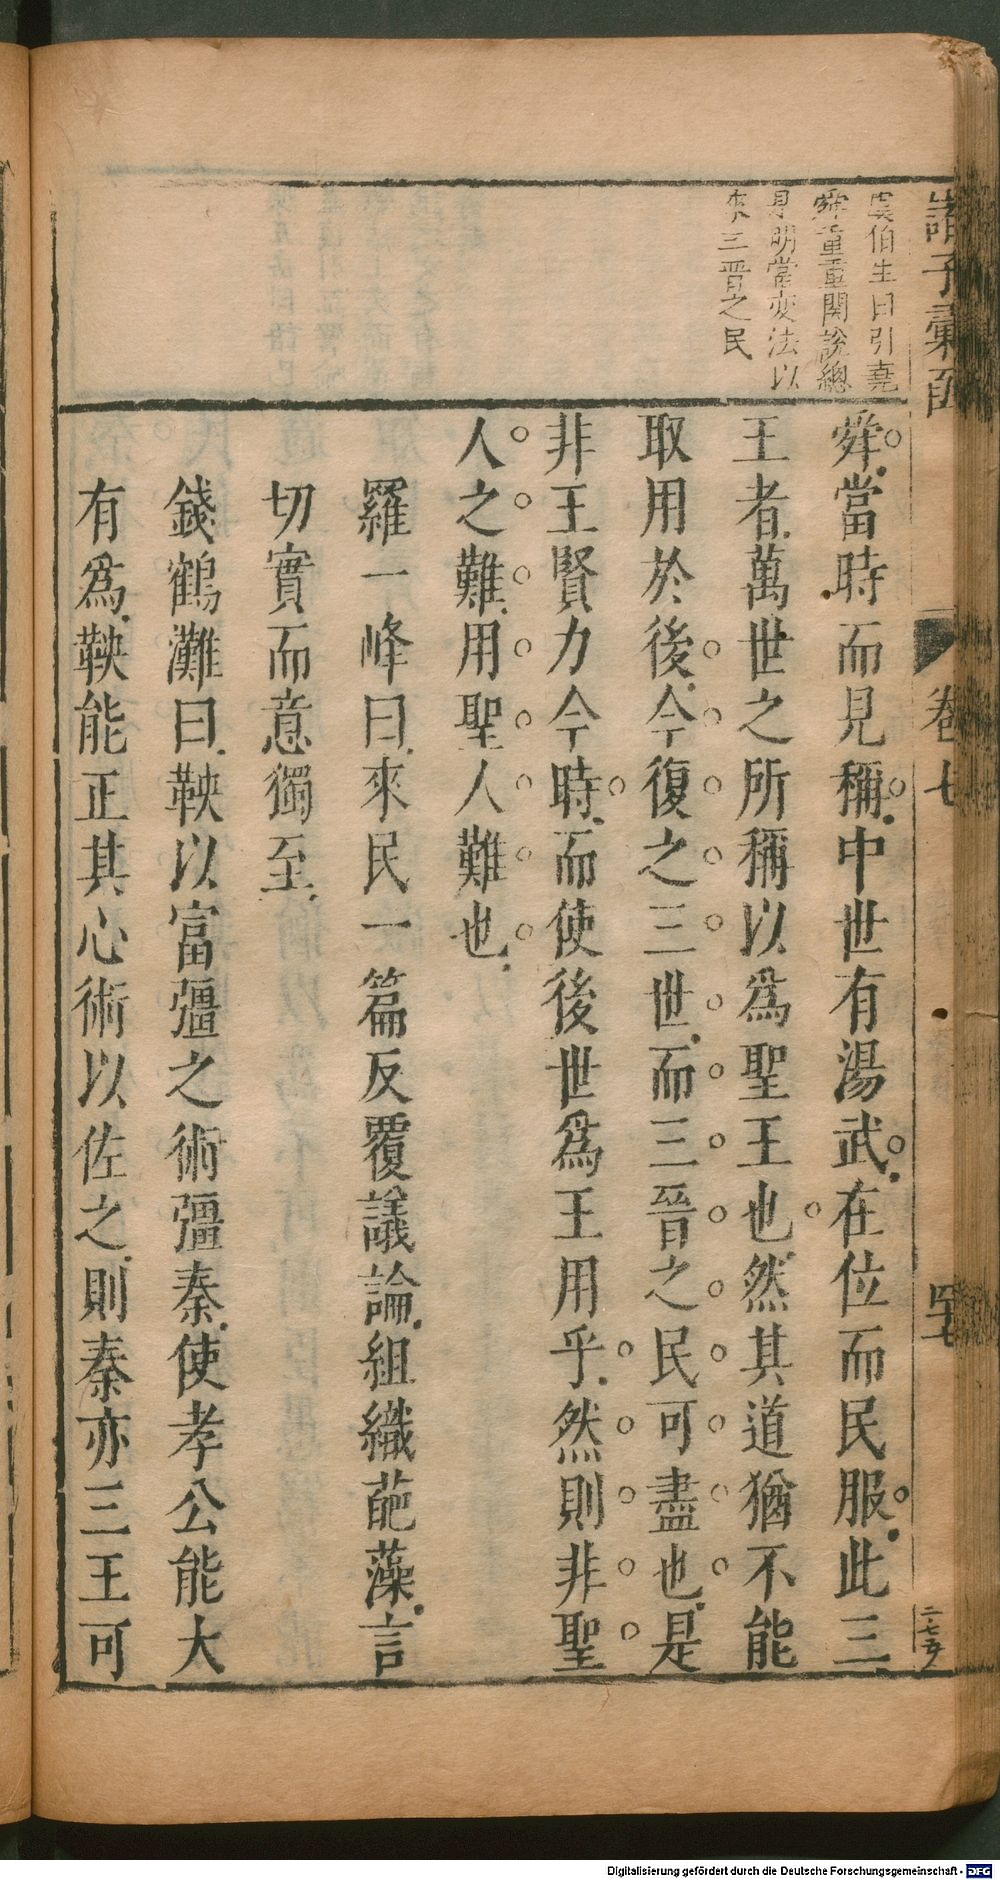 諸子彙函
卷七
四七
二七五
虞伯生曰引堯
舜重重関說總
見明當変法以
來三晉之民
舜當時而見稱中世有湯武在位而民服此三
王者萬世之所稱以爲聖王也然其道猶不能
取用於後今復之三世而三晉之民可盡也是
非王賢力今時而使後世爲王用乎然則非聖
人之難用聖人難也
羅一峰曰來民一篇反覆議論組織葩藻言
切實而意獨至
錢鶴灘曰鞅以富彊之術彊秦使孝公能大
有爲鞅能正其心術以佐之則秦亦三王可
Digitalisierung gefördert durch die Deutsche Forschungsgemeinschaft - DFG